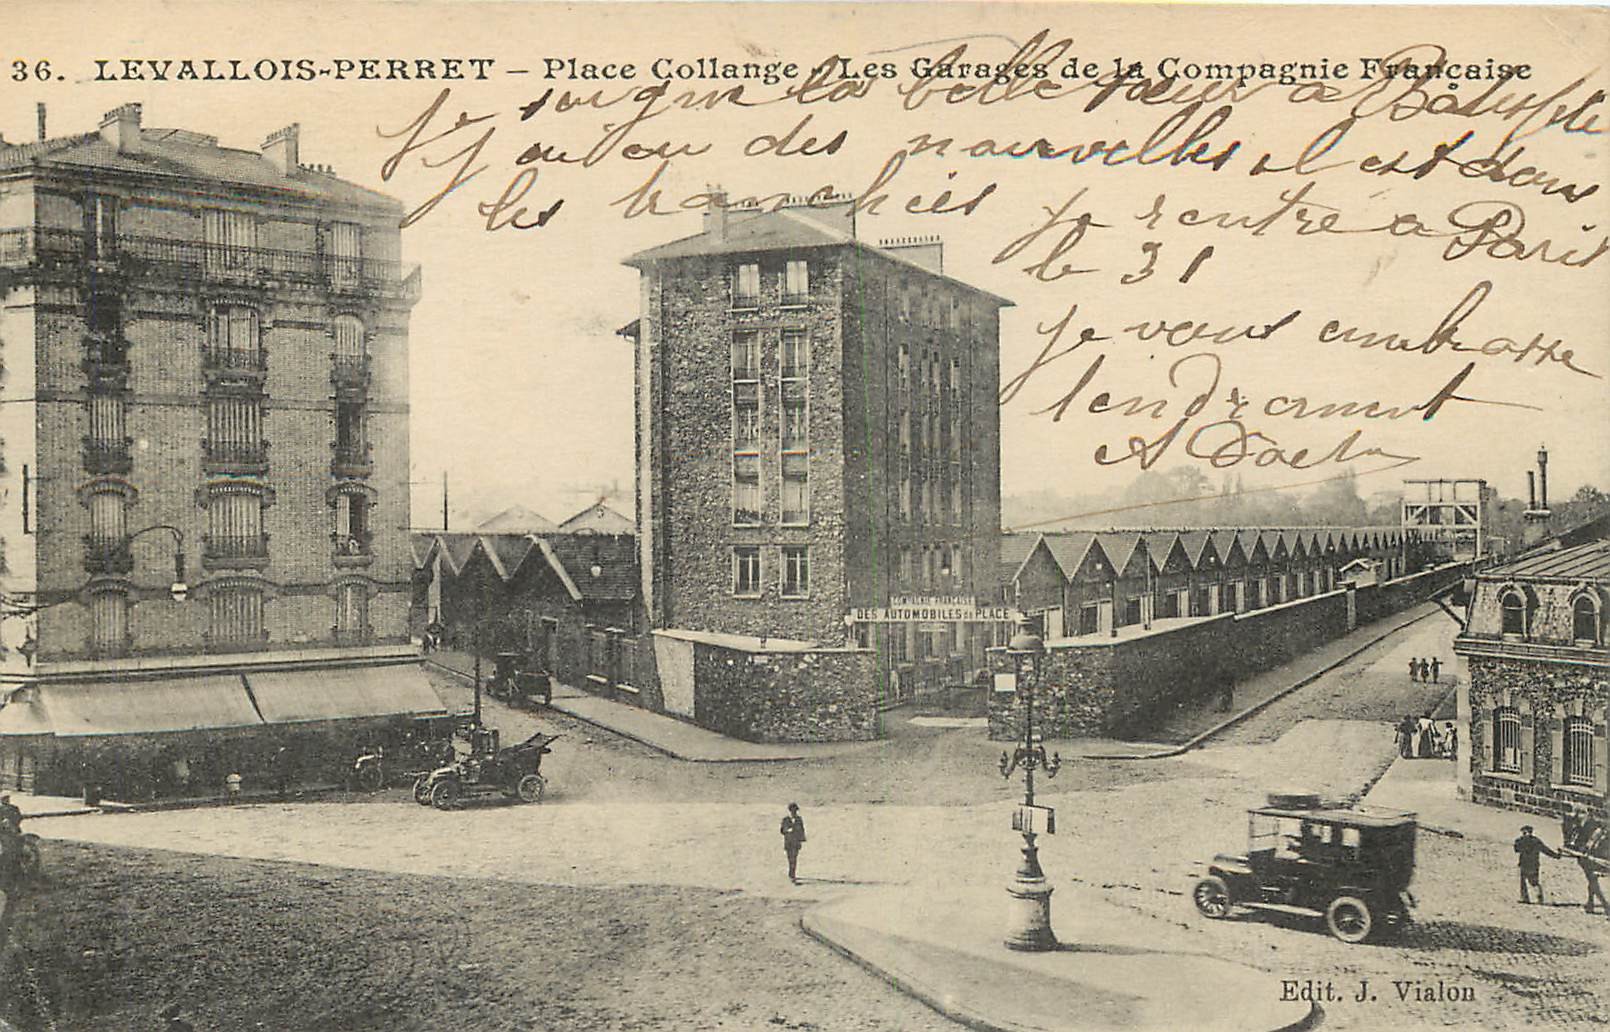 36. LEVALLOIS-PERRET – Place Collange - Les Garages de la Compagnie Française
Je soigne la belle soeur a
J'ai eu des nouvelles il est dans
les tranchées
Je rentre a Paris
le 31
Je vous embrasse
tendrement
COMPAGNIE FRANÇAISE
DES AUTOMOBILES DE PLACE
Edit. J. Vialon